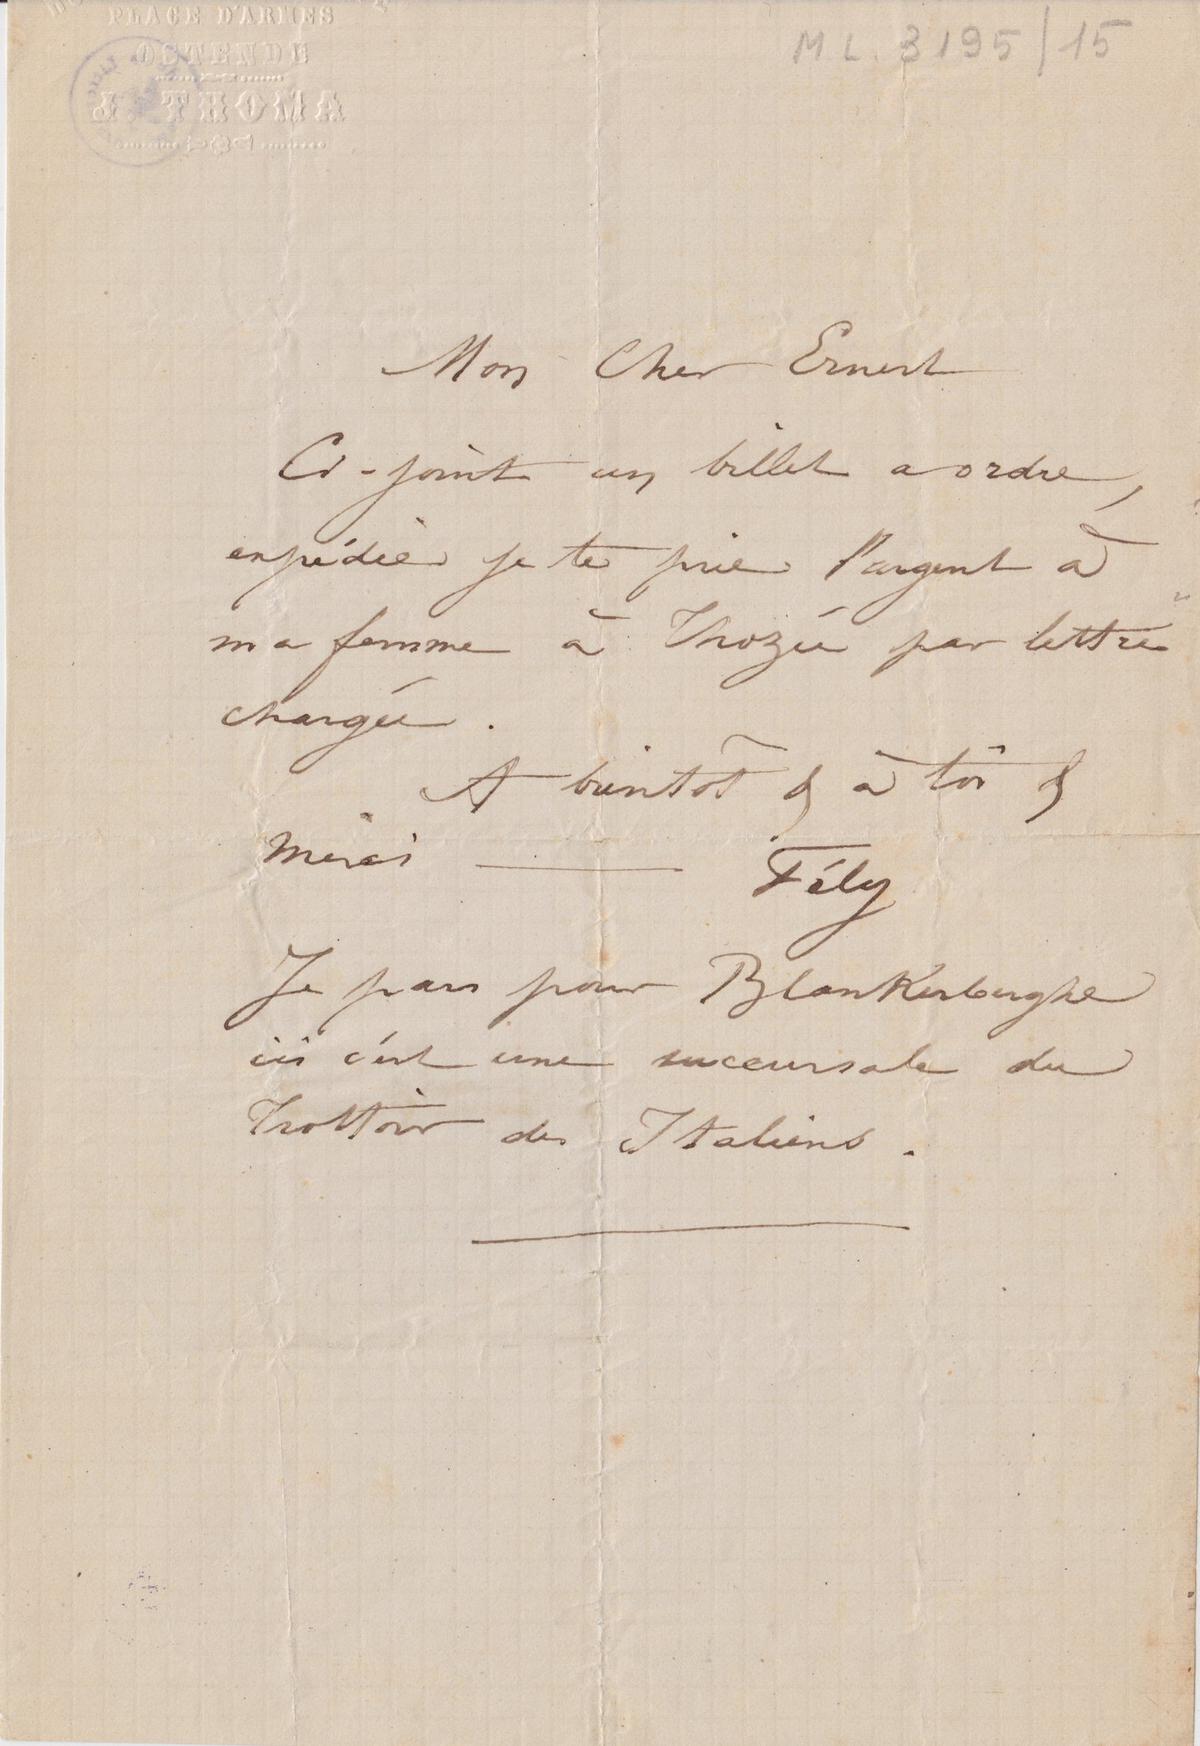 PLACE D'ARMES
OSTENDE
J. THOMA
M.L. 3195/15
Mon Cher Ernest
Ci-joint un billet a ordre,
expédié je te prie l'argent à
ma femme à Thozée par lettre
chargée.
A bientôt & à toi &
merci — Fély
Je pars pour Blankenberghe
ici c'est une succursale du
Trottoir des Italiens.